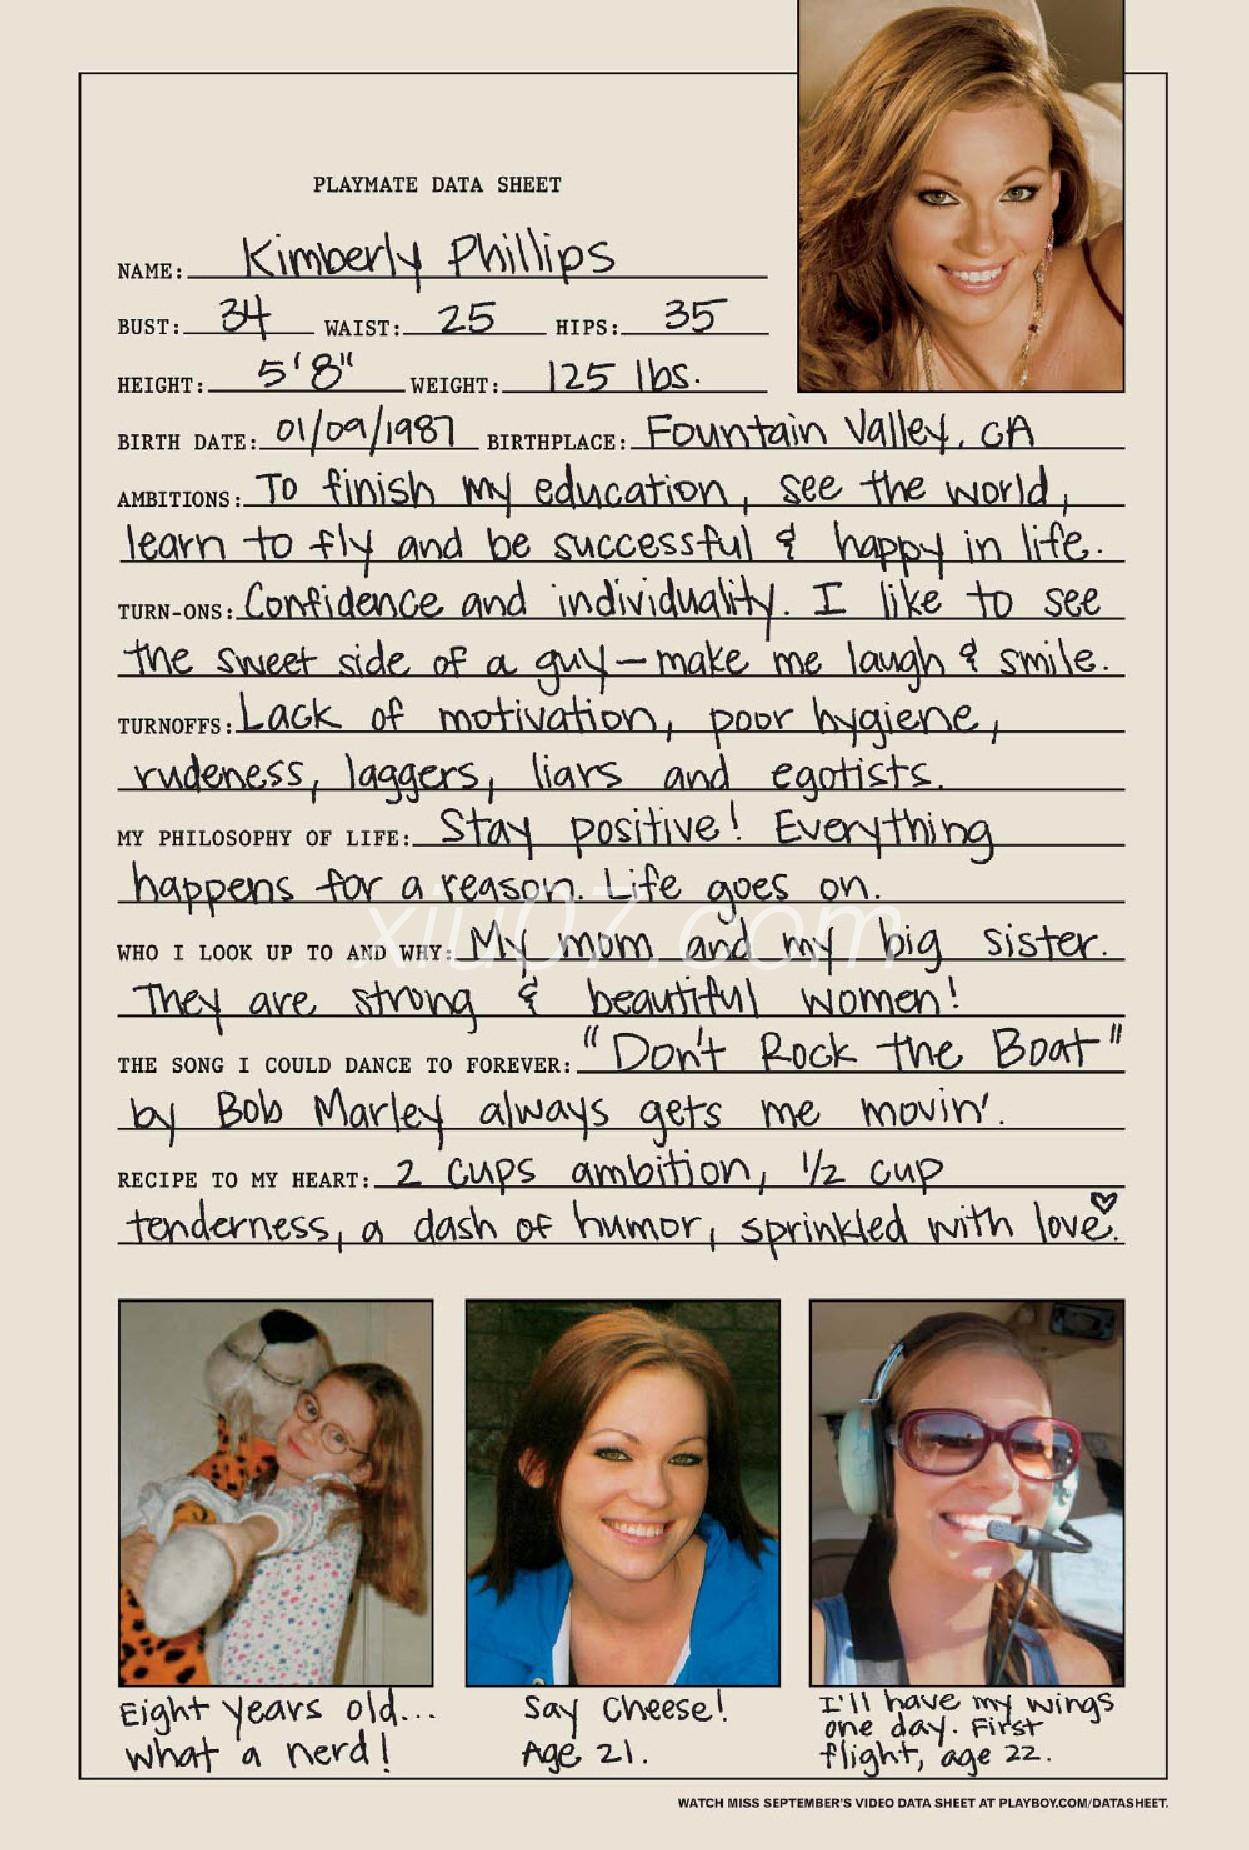 PLAYMATE DATA SHEET
NAME: Kimberly Phillips
BUST: 34 WAIST: 25 HIPS: 35
HEIGHT: 5'8" WEIGHT: 125 lbs.
BIRTH DATE: 01/09/1987 BIRTHPLACE: Fountain Valley, CA
AMBITIONS: To finish my education, see the world,
learn to fly and be successful & happy in life.
TURN-ONS: Confidence and individuality. I like to see
the sweet side of a guy—make me laugh & smile.
TURNOFFS: Lack of motivation, poor hygiene,
rudeness, laggers, liars and egotists.
MY PHILOSOPHY OF LIFE: Stay positive! Everything
happens for a reason. Life goes on.
xiu07.com
WHO I LOOK UP TO AND WHY: My mom and my big sister.
They are strong & beautiful women!
THE SONG I COULD DANCE TO FOREVER: "Don't Rock the Boat"
by Bob Marley always gets me movin'.
RECIPE TO MY HEART: 2 cups ambition, 1/2 cup
tenderness, a dash of humor, sprinkled with love.
Eight years old...
what a nerd!
Say Cheese!
Age 21.
I'll have my wings
one day. First
flight, age 22.
WATCH MISS SEPTEMBER'S VIDEO DATA SHEET AT PLAYBOY.COM/DATASHEET.